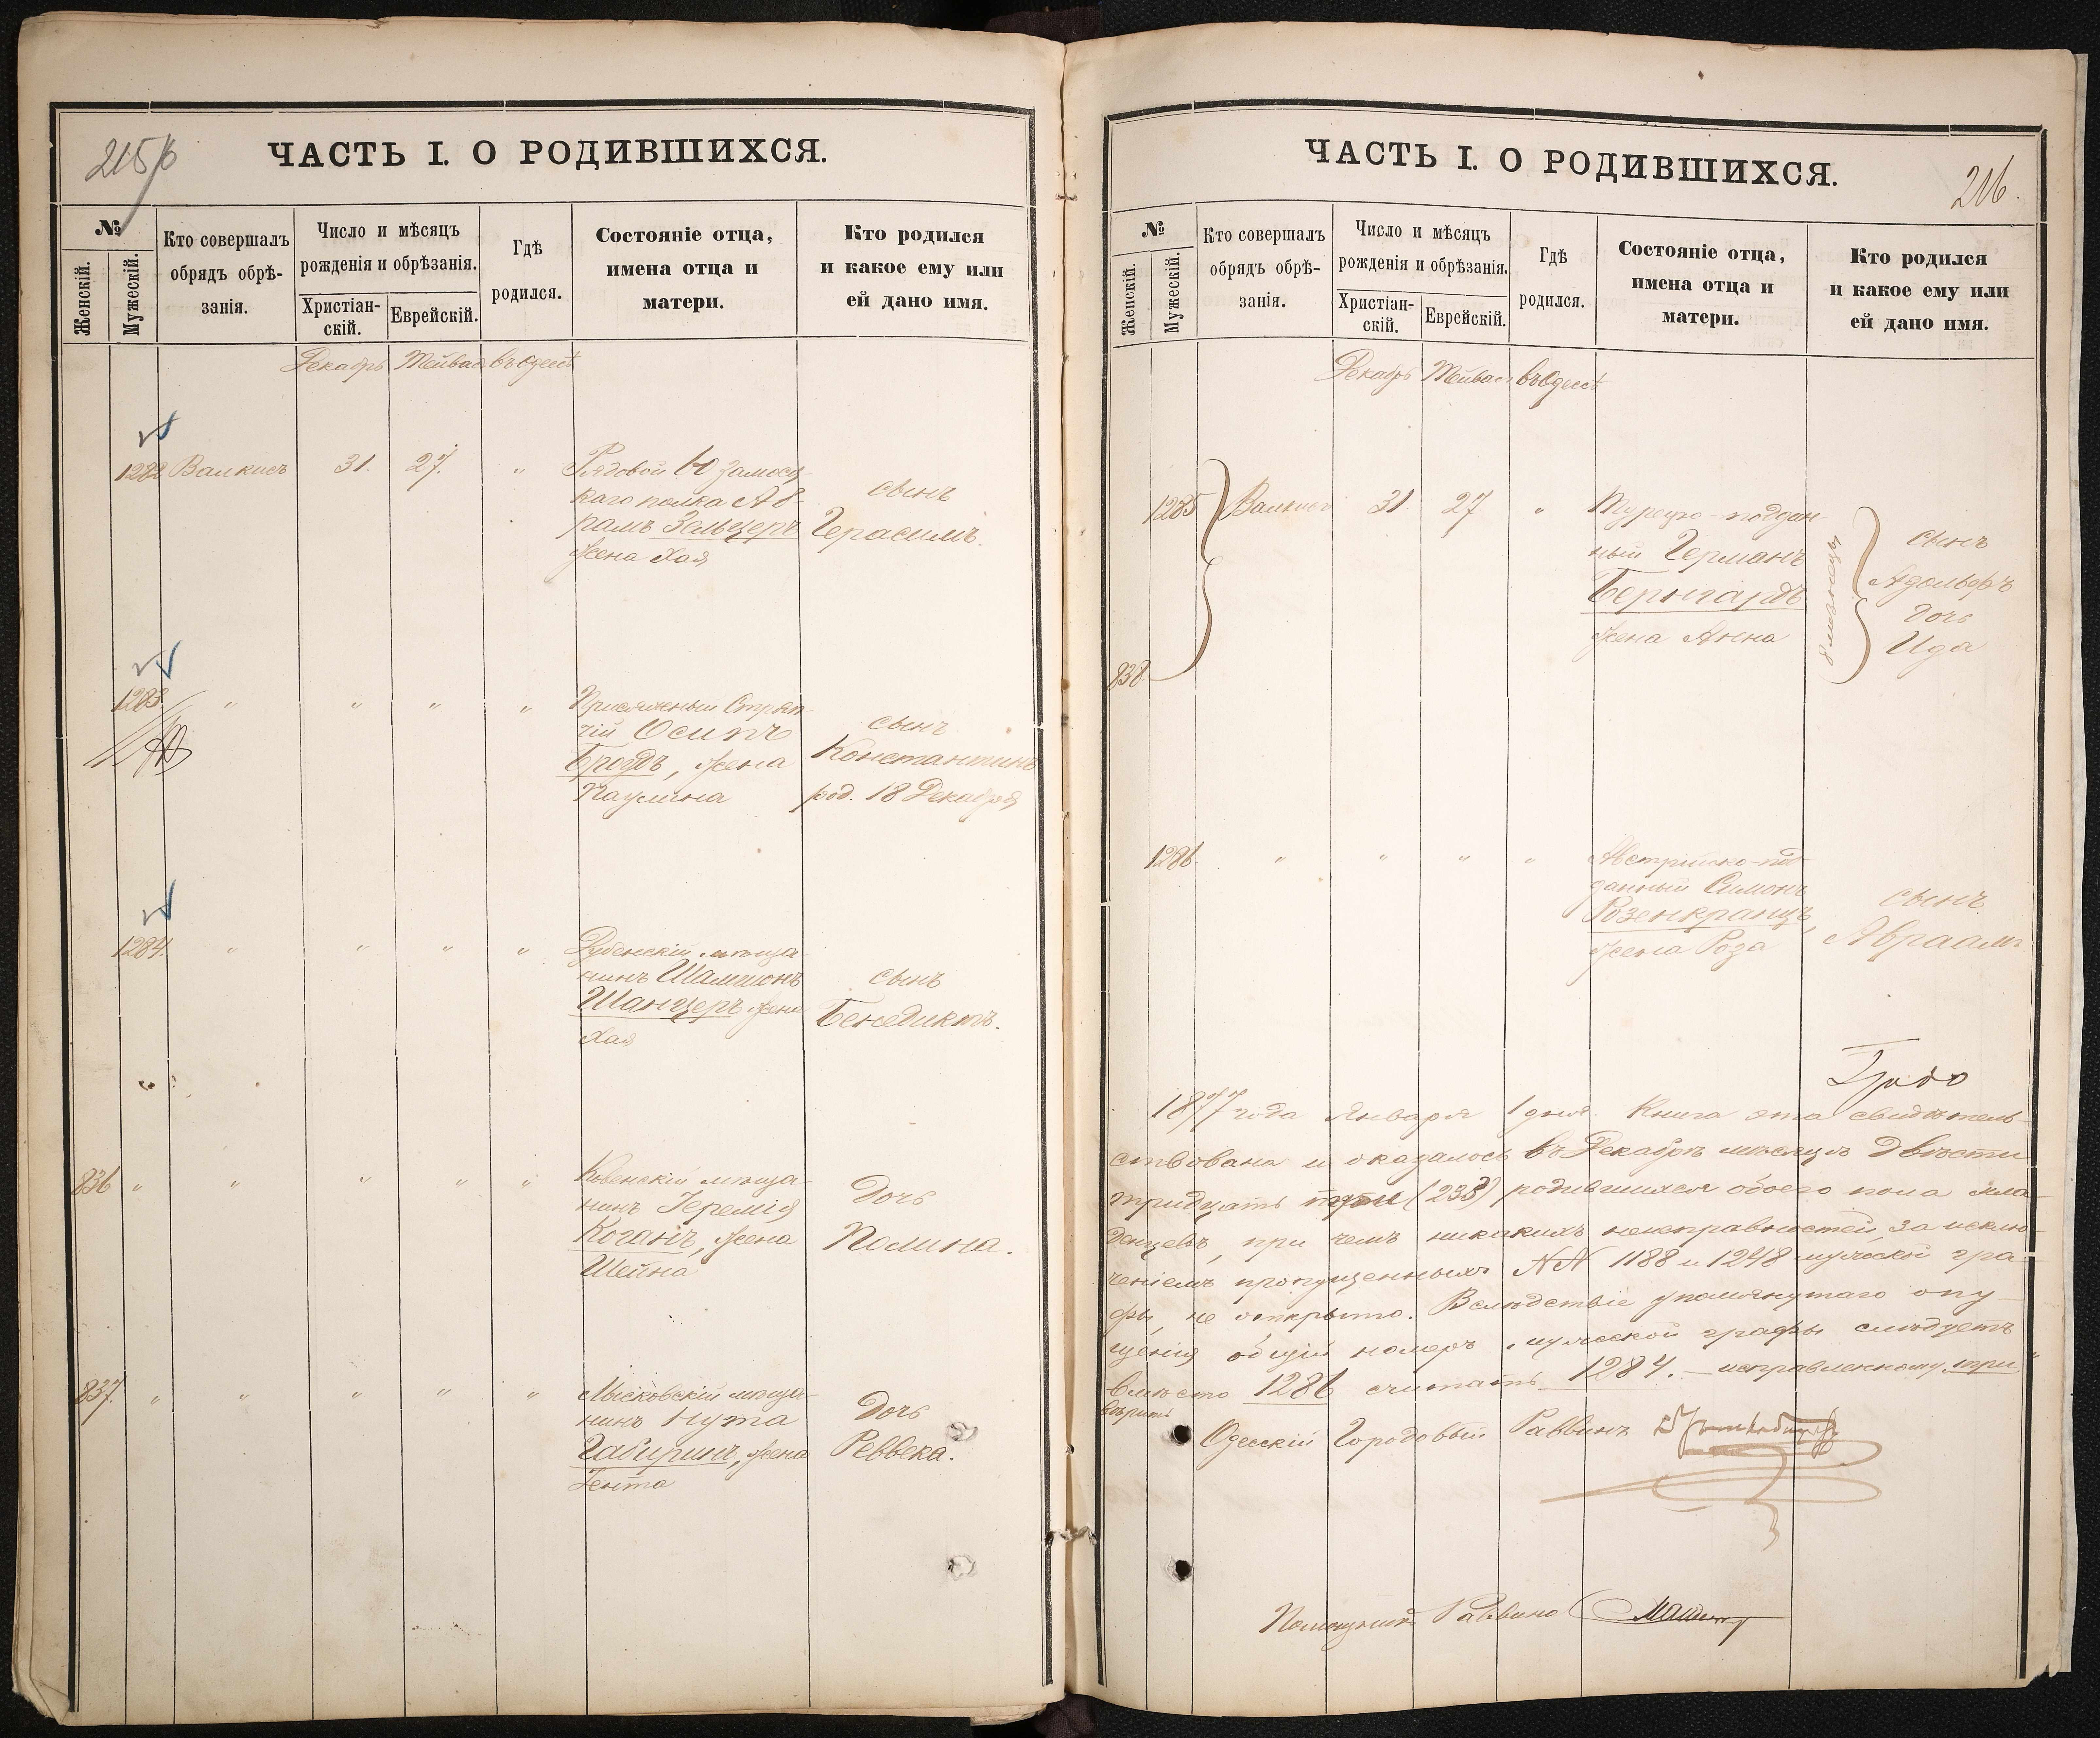 215/б
ЧАСТЬ I. О РОДИВШИХСЯ.
№
Женскій.
Мужескій.
Кто совершалъ
обрядъ обрѣ-
занія.
Число и мѣсяцъ
рожденія и обрѣзанія.
Христіан-
скій.
Еврейскій.
Гдѣ
родился.
Состояніе отца,
имена отца и
матери.
Кто родился
и какое ему или
ей дано имя.
Декабрь Тейвас въ Одессѣ
1282 Валкисъ 31. 27. "
Рядовой
каго полка Аб-
рамъ Зельцеръ
жена Хая
сынъ
Герасимъ.
1283. " " " "
Присяжный Стряп-
чій Осипъ
Бродъ, жена
Паулина
сынъ
Константинъ
род. 18 Декабря
1284. " " " "
Дубенскій мѣща-
нинъ Шамшонъ
Шанцеръ жена
Хая
сынъ
Бенедиктъ.
836 " " " " "
Ковенскій мѣща-
нинъ Іеремія
Коганъ, жена
Шейна
Дочь
Полина.
837. " " " " "
Лысковскій мѣща-
нинъ Нута
жена
Іента
Дочь
Реввека.
216.
ЧАСТЬ I. О РОДИВШИХСЯ.
№
Женскій.
Мужескій.
Кто совершалъ
обрядъ обрѣ-
занія.
Число и мѣсяцъ
рожденія и обрѣзанія.
Христіан-
скій.
Еврейскій.
Гдѣ
родился.
Состояніе отца,
имена отца и
матери.
Кто родился
и какое ему или
ей дано имя.
Декабрь Тейвас въ Одессѣ
1285 Валкисъ 31 27 "
838
Турецко-поддан-
ный Германъ
Бернгардъ
жена Анна
близнецы
сынъ
Адольфъ
дочь
Ида
1286 " " " "
Австрійско-под-
данный Симонъ
Розенкранцъ,
жена Роза
сынъ
Авраамъ
1877 года Января 1 дня. Книга эта свидѣтель-
ствована и оказалось въ Декабрѣ мѣсяцѣ Двѣсти
тридцать родившихся обоего пола мла-
денцевъ, при чемъ никакихъ неисправностей, за исклю-
ченіемъ пропущенныхъ №№ 1188 и 1248 мужской гра-
фы, не открыто. Вслѣдствіе упомянутаго опу-
щенія общій номеръ мужской графы слѣдуетъ
вмѣсто 1286 считать 1284. — исправленному три
вѣрить
Одесскій Городовый Раввинъ
Помощникъ Раввина